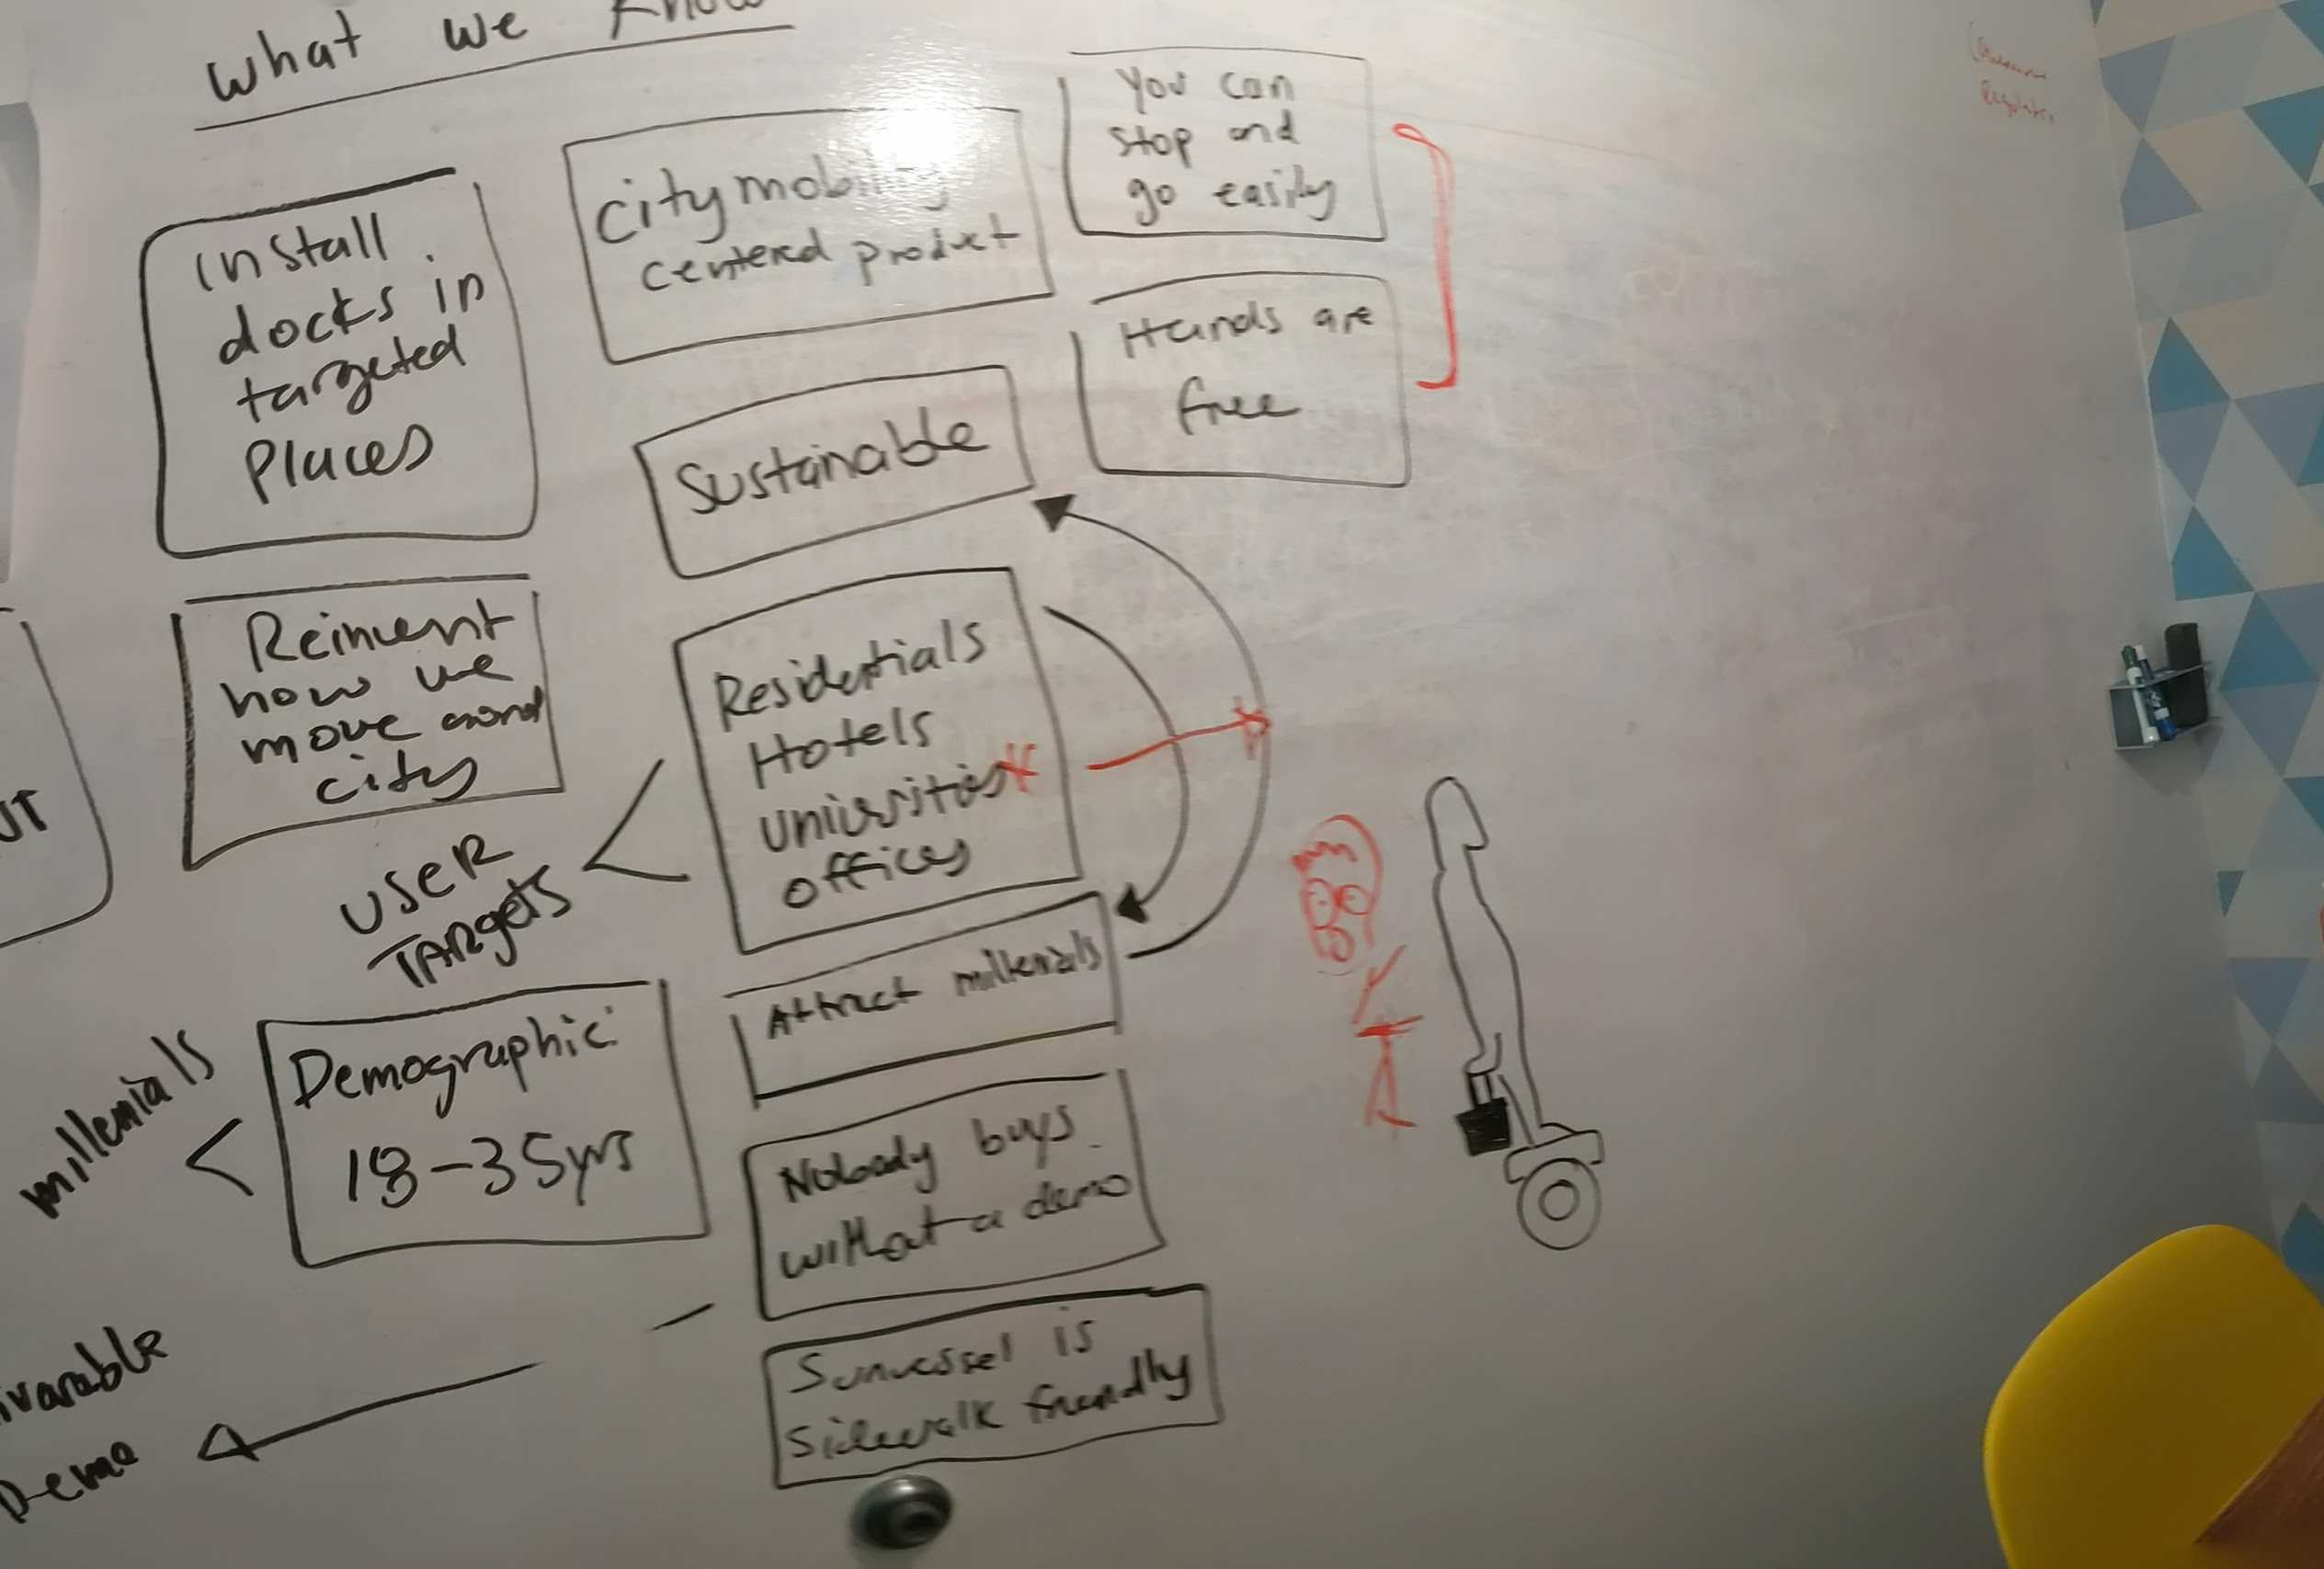 what we know
install
docks in
targeted
Places
city mobility
centered product
You can
stop and
go easily
Hands are
free
Sustainable
Reinvent
how we
move around
city
Residentials
Hotels
offices
USER
TARgets
Attract millenials
millenials
Demographic:
18-35yrs
Nobody buys
without a demo
Sunvessel is
sidewalk friendly
Demo